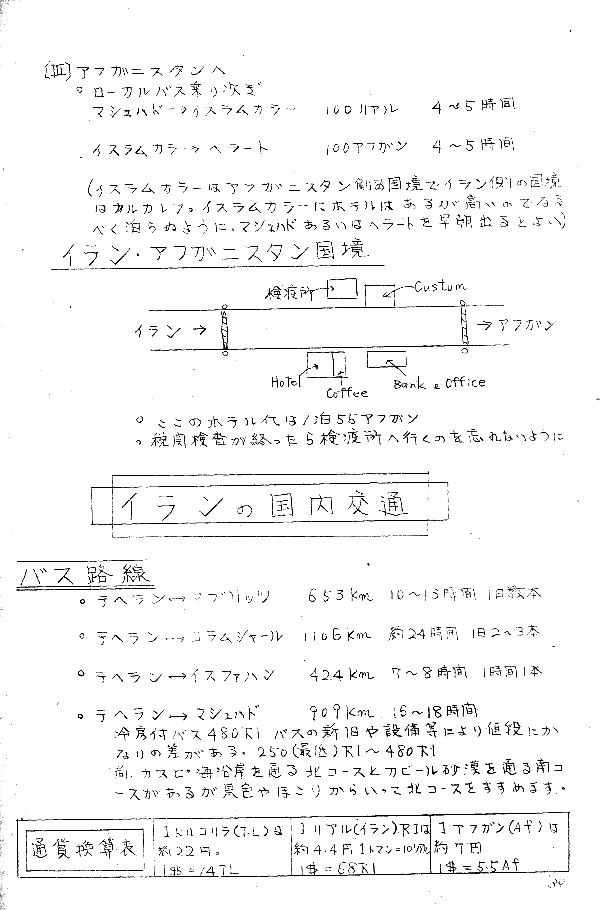 〔Ⅲ〕アフガニスタンへ
○ ローカルバス乗り次ぎ
マシェハド→イスラムカラー 100リアル 4～5時間
イスラムカラー→ヘラート 100アフガン 4～5時間
(イスラムカラーはアフガニスタン側の国境でイラン側の国境
はカルカレフ。イスラムカラーにホテルはあるが高いのでなる
べく泊らぬように、マシェハドあるいはヘラートを早朝出るとよい)
イラン・アフガニスタン国境
検疫所 Custum
イラン→ →アフガン
Hotel Coffee Bank & Office
○ ここのホテル代は1泊55アフガン
○ 税関検査が終ったら検疫所へ行くのを忘れないように
イランの国内交通
バス路線
○ テヘラン→タブリッツ 653Km 10～13時間 1日数本
○ テヘラン→コラムシャール 1106Km 約24時間 1日2～3本
○ テヘラン→イスファハン 424Km 7～8時間 1時間1本
○ テヘラン→マシェハド 909Km 16～18時間
冷房付バス480RI バスの新旧や設備等により値段にか
なりの差がある。250(最低)RI～480RI
尚、カスピ海沿岸を通る北コースとカビール砂漠を通る南コ
ースがあるが景色やほこりからいって北コースをすすめます。
通貨換算表
1トルコリラ(T.L)は
約22円。
1$=14TL
1リアル(イラン)RIは
約4.4円 1トマン=10リアル
1$=68RI
1アフガン(Af)は
約7円
1$=55Af